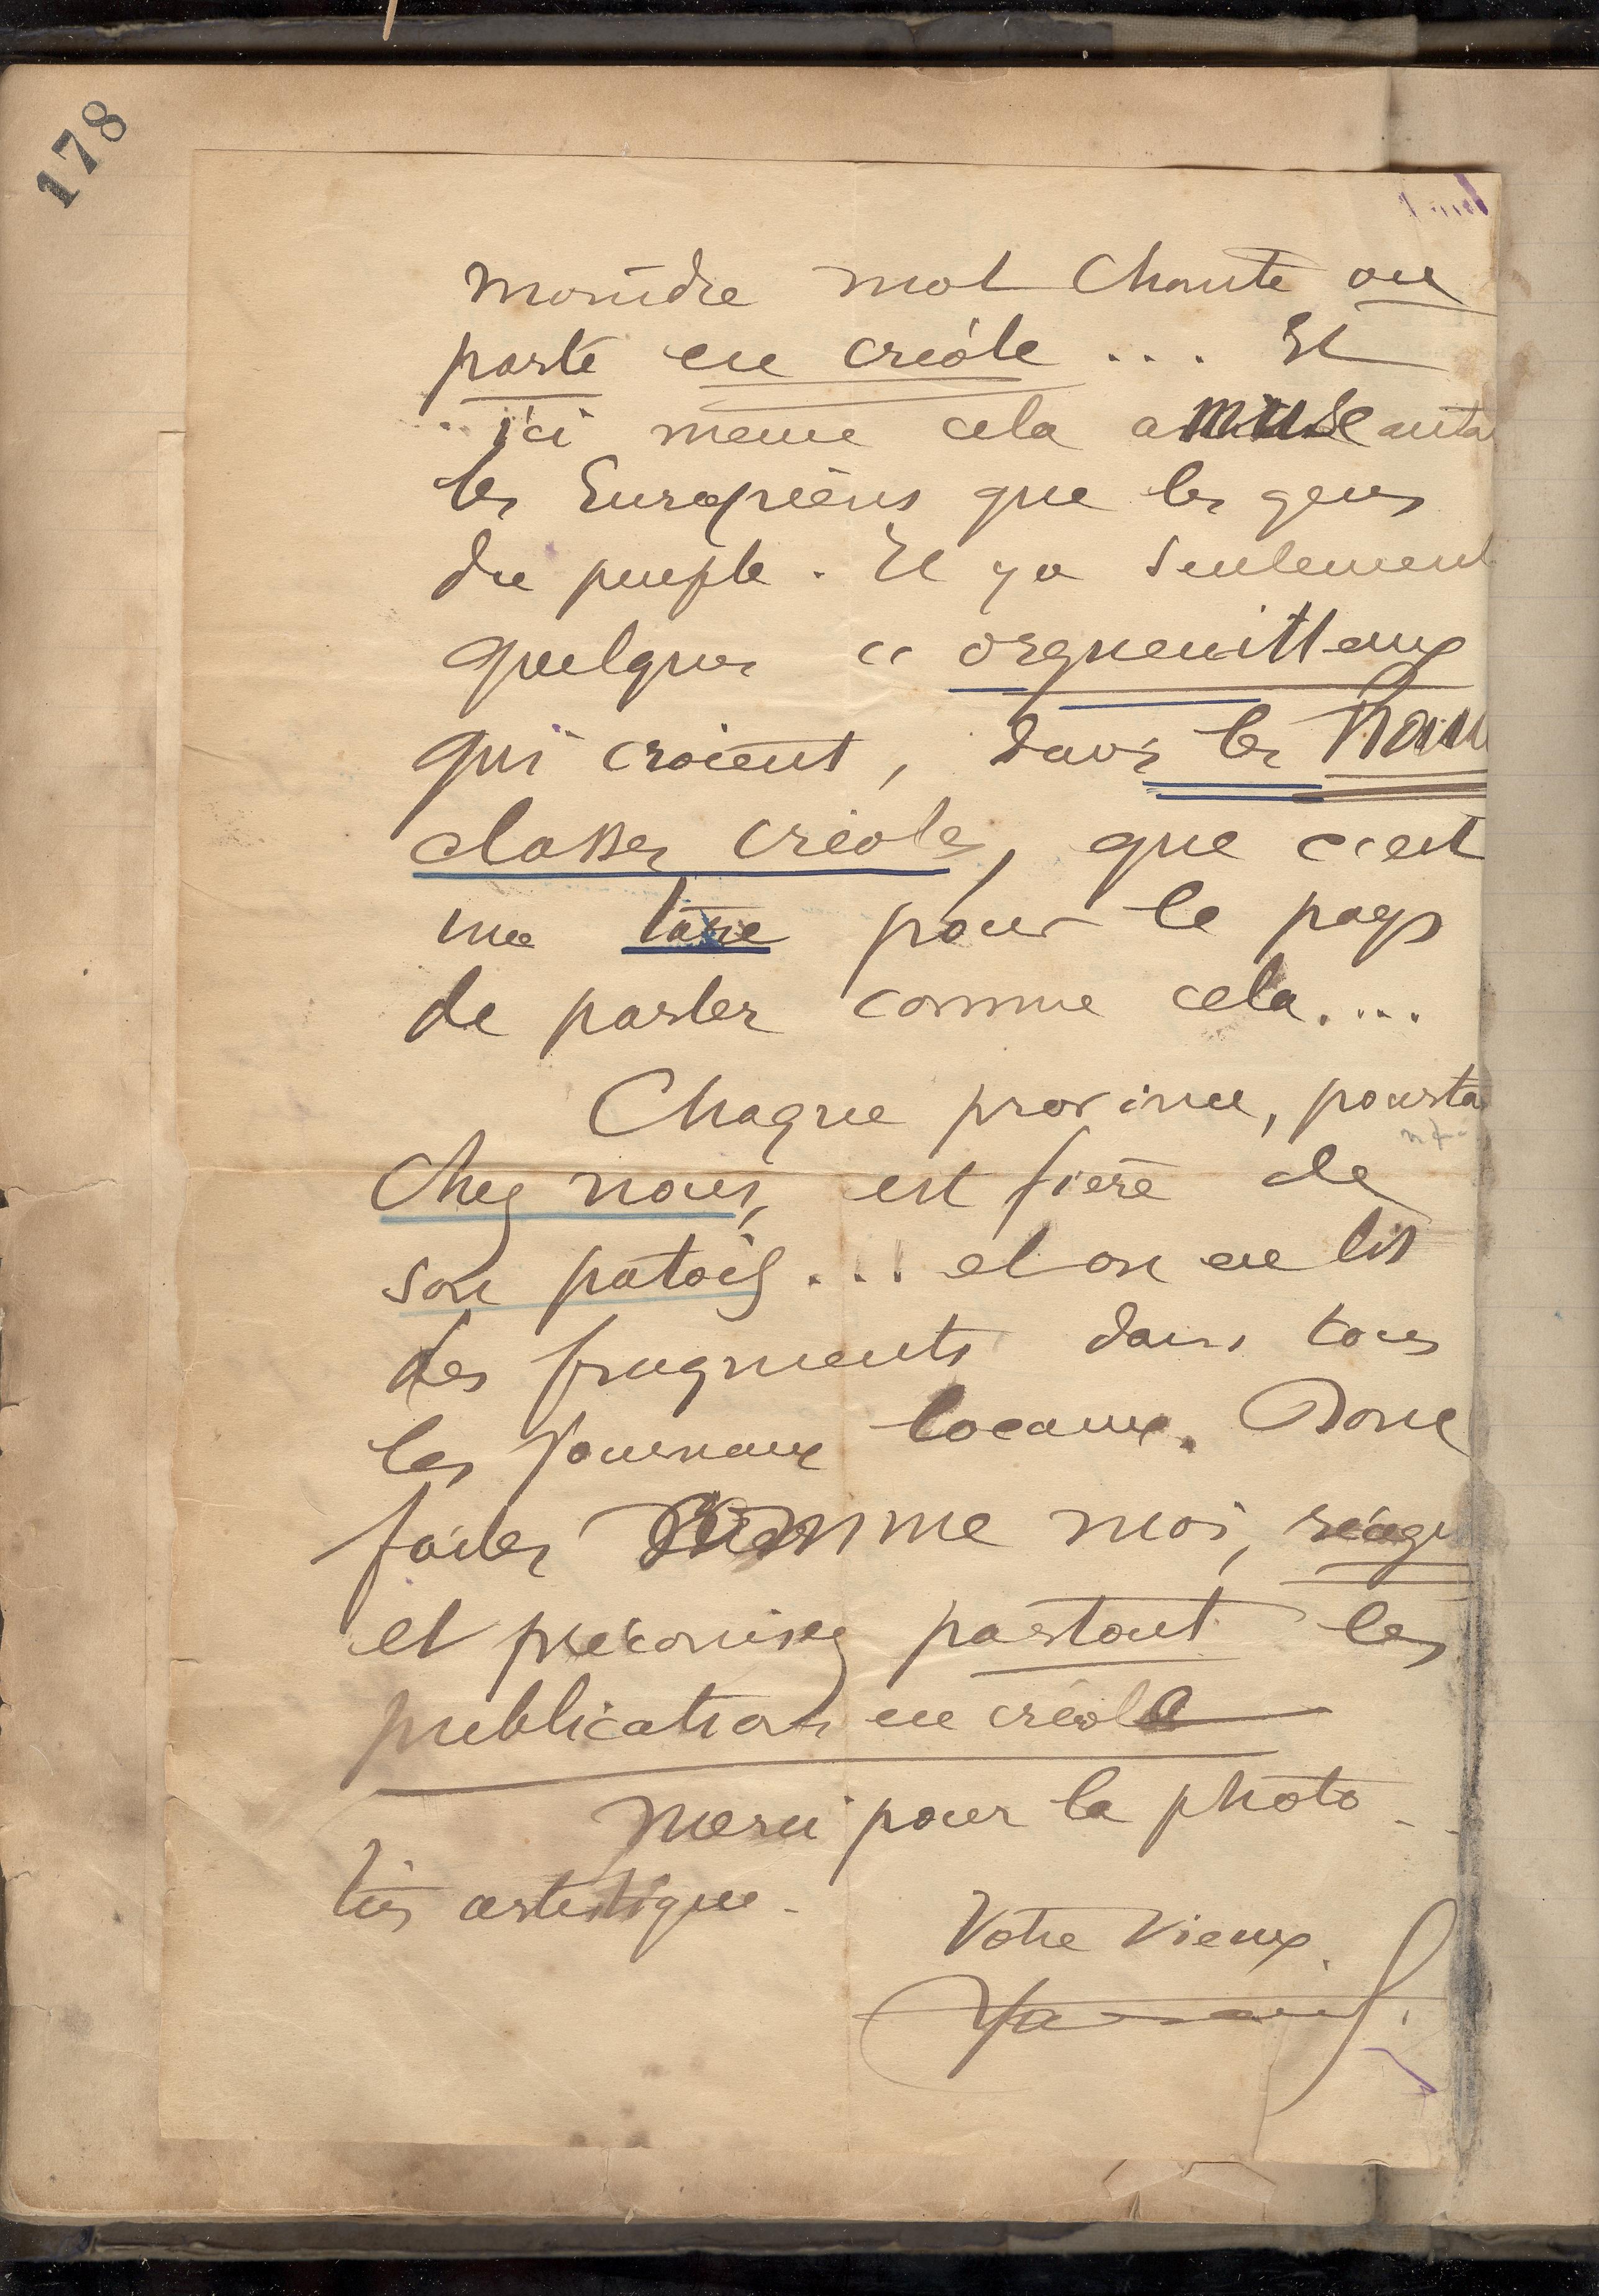 178
moindre mot chanté ou
parlé en créole .... Et
ici même cela amuse auta
les Européens que les gens
du peuple. Il y a seulement
quelques « orgueuilleux
qui croient, dans les hau
classes créoles, que c'est
une tare pour le pays
de parler comme cela....
Chaque province, pourta
nt
chez nous, est fière de
son patois ... et on en lit
des fragments dans tous
les journaux locaux. Donc
faites comme moi, réagi
et préconisez partout les
publications en créole
Merci pour la photo
très artistique.
Votre vieux